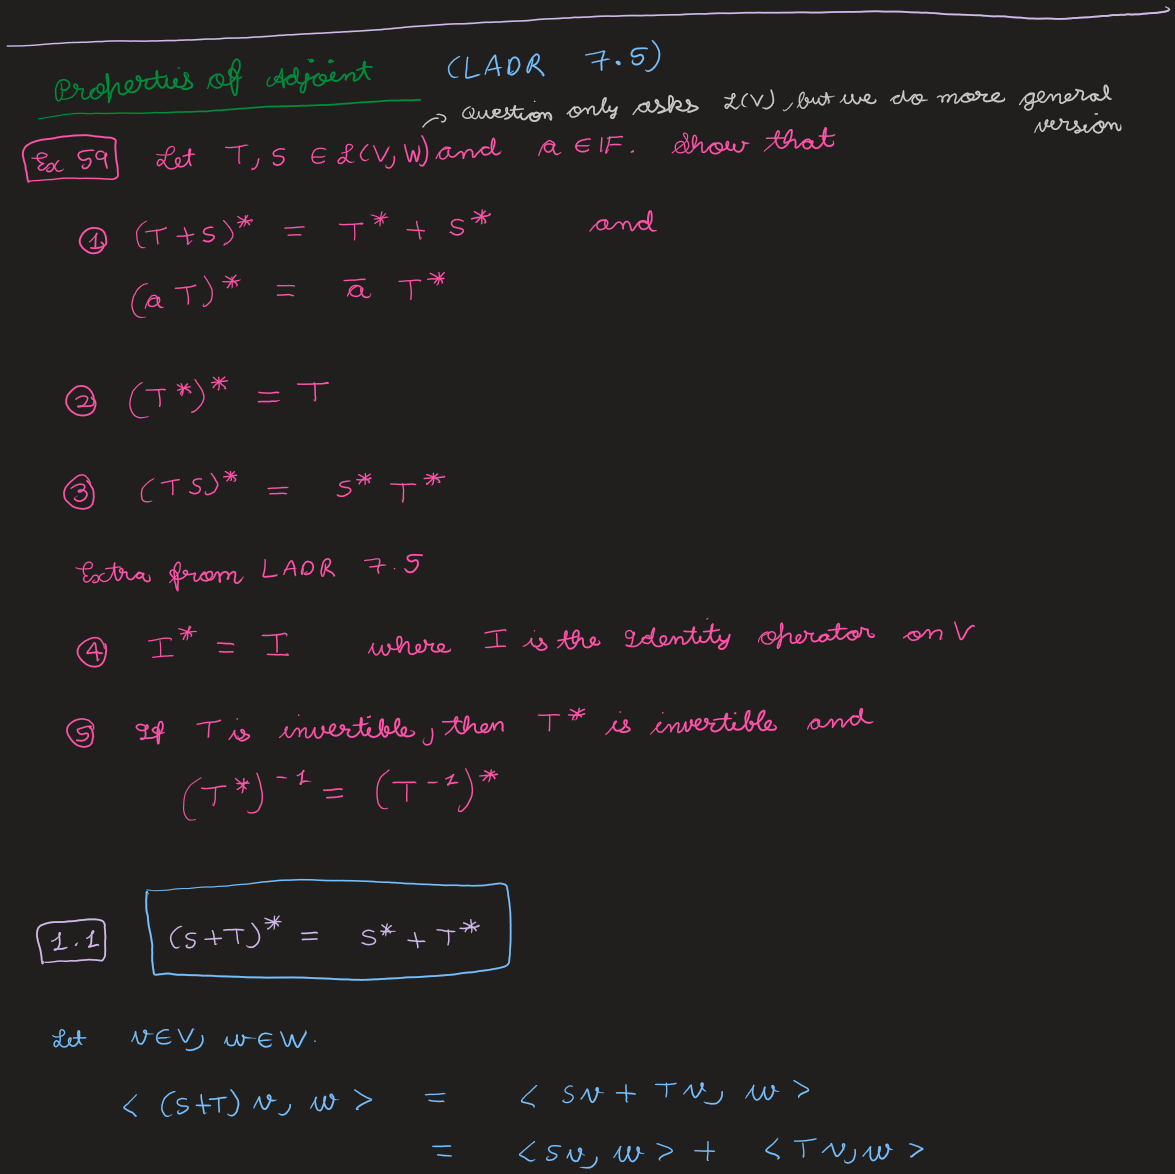 Properties of Adjoint (LADR 7.5)
→ Question only asks ℒ(V), but we do more general
version
Ex 59 Let T, S ∈ ℒ(V, W) and a ∈ IF. Show that
① (T + S)* = T* + S* and
(a T)* = a̅ T*
② (T*)* = T
③ (TS)* = S* T*
Extra from LADR 7.5
④ I* = I where I is the Identity operator on V
⑤ If T is invertible, then T* is invertible and
(T*)⁻¹ = (T⁻¹)*
1.1 (S+T)* = S* + T*
Let v∈V, w∈W.
< (S+T) v, w > = < Sv + Tv, w >
= < Sv, w > + < Tv, w >